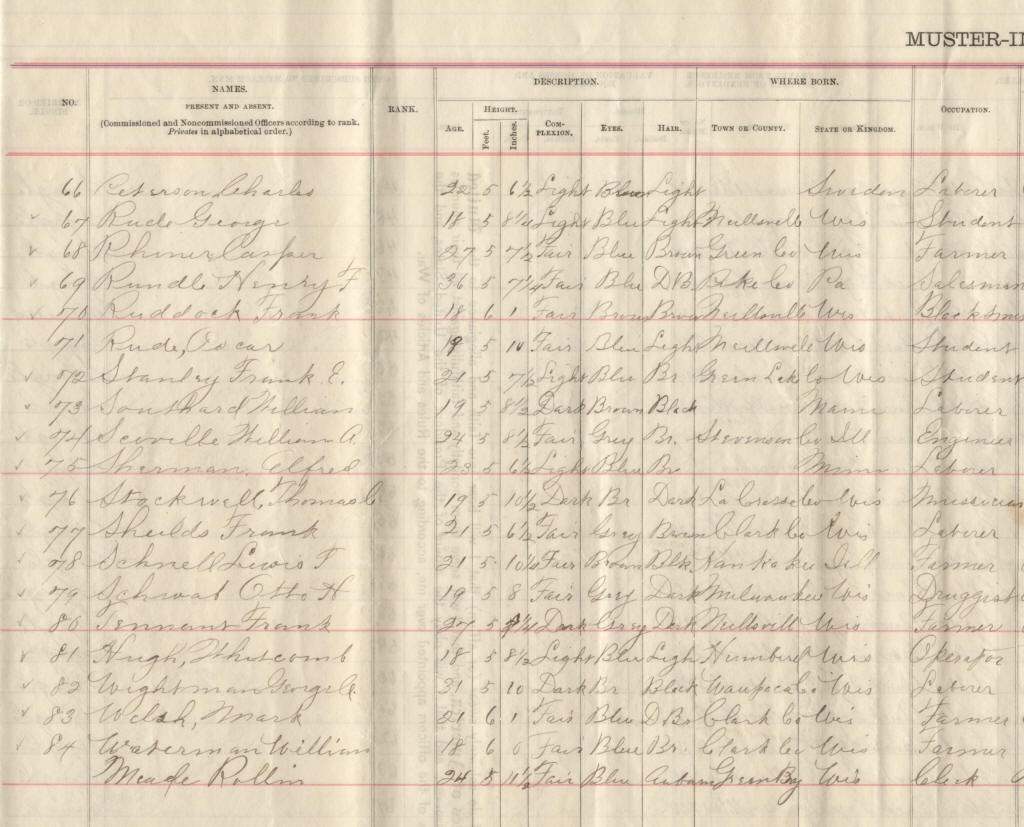 MUSTER-IN
NO. NAMES. PRESENT AND ABSENT. (Commissioned and Noncommissioned Officers according to rank. Privates in alphabetical order.) RANK. DESCRIPTION. WHERE BORN. OCCUPATION.
AGE. HEIGHT. Feet. Inches. COM-PLEXION. EYES. HAIR. TOWN OR COUNTY. STATE OR KINGDOM.
66 Peterson, Charles 22 5 6½ Light Blue Light Sweden Laborer
67 Rude George 18 5 8¼ Light Blue Light Neillsvill Wis Student
68 Rhiner Casper 27 5 7½ Fair Blue Brown Green Co Wis Farmer
69 Rundle Henry F 36 5 7¼ Fair Blu DB Pike Co Pa Salesman
70 Ruddock Frank 18 6 1 Fair Brown Brown Neillsville Wis
71 Rude, Oscar 19 5 10 Fair Blue Ligh Neillsvile Wis Student
72 Stanley Frank E. 21 5 7½ Light Blu Br Green Lak Co Wis Student
73 Southard William 19 5 8½ Dark Brown Black Maine Laborer
74 Scoville William A. 24 5 8½ Fair Grey Br. Stevenson Co Ill Engineer
75 Sherman, Alfred 23 5 6½ Light Blue Br Minn Laborer
76 Stockwell, Thomas C 19 5 10½ Dark Br Dark La Crosse Co Wis Mussician
77 Sheilds Frank 21 5 6½ Fair Grey Brown Clark Co Wis Laborer
78 Schnell Lewis F 21 5 10¼ Fair Brown Blk Kankakee Ill Farmer
79 Schwab Otto H 19 5 8 Fair Grey Dark Milwaukee Wis Druggist
80 Tennant Frank 27 5 Dark Grey Dark Neillsvill Wis Farmer
81 Hugh, Whitcomb 18 5 8½ Light Blue Ligh Humbird Wis Operator
82 Wightman George 31 5 10 Dark Br Black Waupaca Co Wis Laborer
83 Welsh, Mark 21 6 1 Fair Blue D Br Clark Co Wis Farmer
84 Waterman William 18 6 0 Fair Blue Br. Clark Co Wis Farmer
Meade Rollin 24 5 11½ Fair Blue Auburn Green Bay Wis Clerk